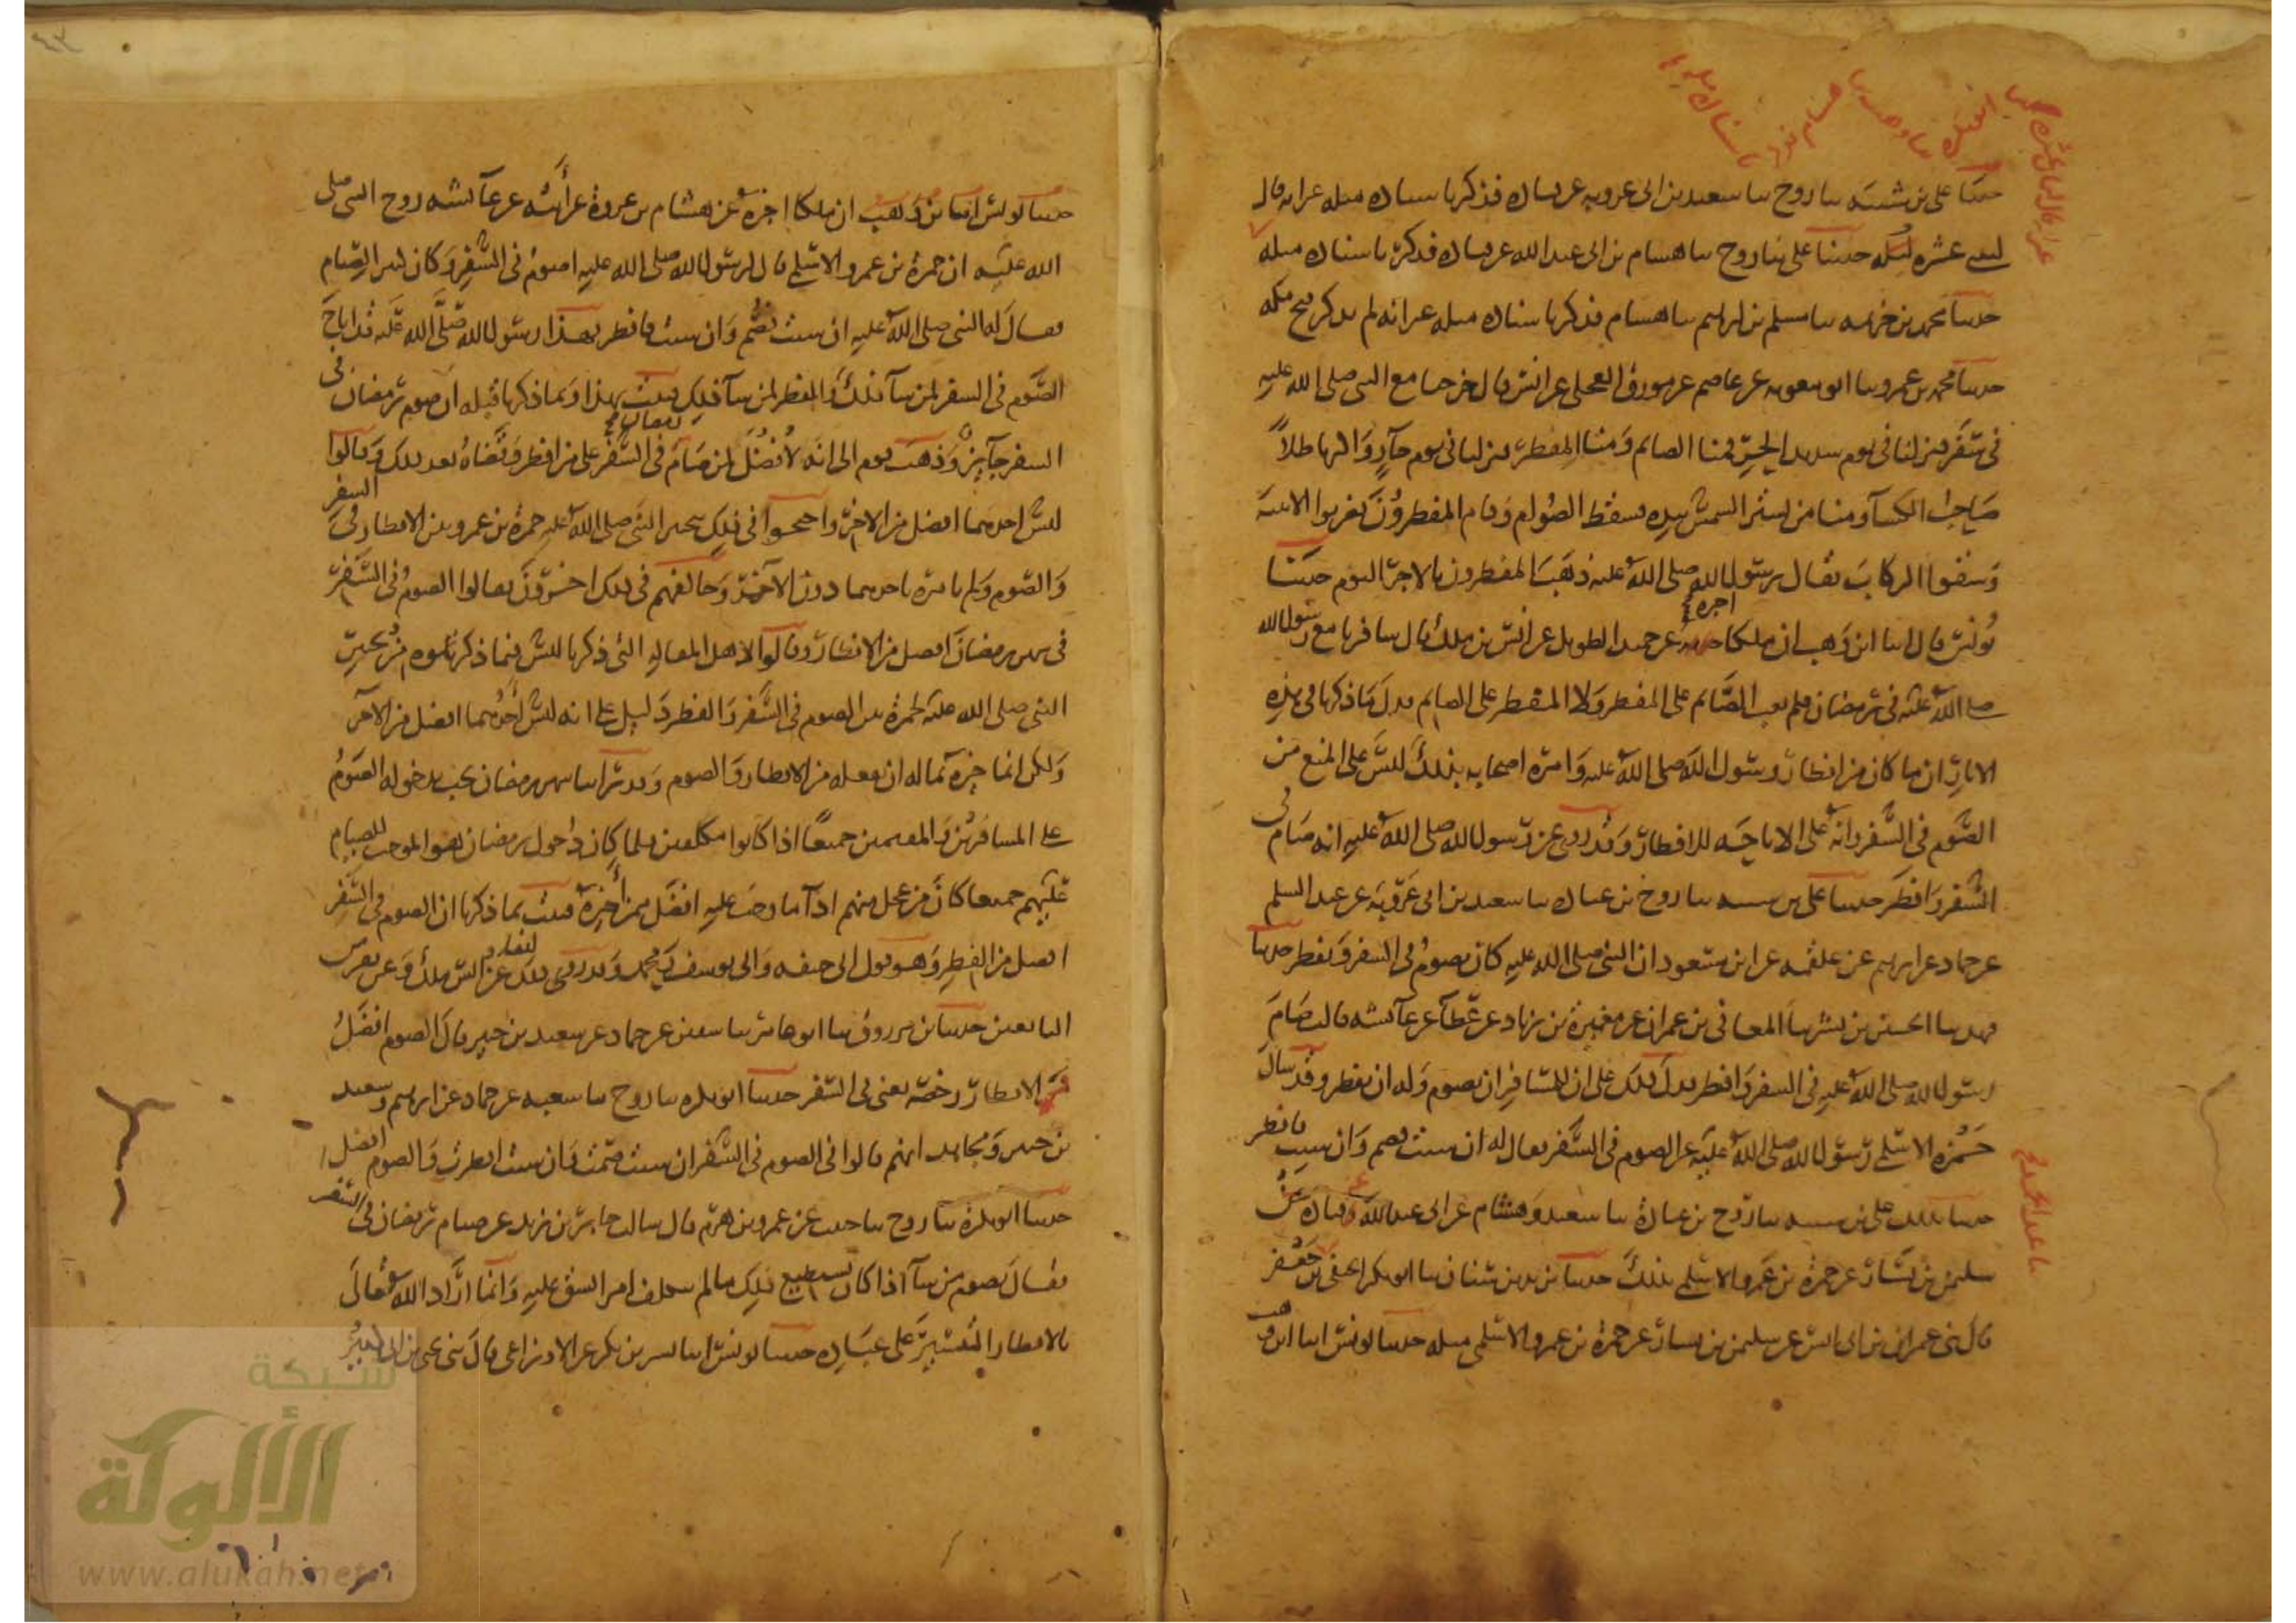 حدثنا علي بن شيبة ثنا روح ثنا سعيد بن ابي عروبة عن قتادة فذكر باسناده مثله غير انه قال
لثنتي عشرة ليلة حدثنا علي ثنا روح ثنا هشام بن ابي عبد الله عن قتادة فذكر باسناده مثله
حدثنا محمد بن خزيمة ثنا مسلم بن ابراهيم ثنا هشام فذكر باسناده مثله غير انه لم يذكر فتح مكة
حدثنا محمد بن عمرو ثنا ابو معوية عن عاصم عن مورق العجلي عن انس قال خرجنا مع النبي صلى الله عليه
في سفر فنزلنا في يوم شديد الحر فمنا الصائم ومنا المفطر فنزلنا في يوم حار واكثرنا ظلا
صاحب الكساء ومنا من يستر الشمس بيده فسقط الصوام وقام المفطرون فضربوا الابنية
وسقوا الركاب فقال رسول الله صلى الله عليه ذهب المفطرون بالاجر اليوم حدثنا
يونس قال انا ابن وهب ان ملكا اخبره عن حميد الطويل عن انس بن ملك قال سافرنا مع رسول الله
صلى الله عليه في رمضان فلم يعب الصائم على المفطر ولا المفطر على الصائم فدل ما ذكرنا في هذه
الاثار ان ما كان من افطار رسول الله صلى الله عليه وامره اصحابه بذلك ليس على المنع من
الصوم في السفر وانه على الاباحة للافطار وقد روي عن رسول الله صلى الله عليه انه صام في
السفر وافطر حدثنا علي بن شيبة ثنا روح بن عبادة ثنا سعيد بن ابي عروبة عن عبد السلم
عن حماد عن ابرهيم عن علقمة عن ابن مسعود ان النبي صلى الله عليه كان يصوم في السفر ويفطر حدثنا
فهد ثنا الحسن بن بشر ثنا المعافى بن عمران عن مغيرة بن زياد عن عطاء عن عائشة قالت صام
رسول الله صلى الله عليه في السفر وافطر فدل ذلك على ان للمسافر ان يصوم وله ان يفطر وقد سال
حمزة الاسلمي رسول الله صلى الله عليه عن الصوم في السفر فقال له ان شئت فصم وان شئت فافطر
حدثنا بذلك علي بن شيبة ثنا روح بن عبادة ثنا سعيد وهشام بن ابي عبد الله عن قتادة عن
سليمن بن يسار عن حمزة بن عمرو الاسلمي بذلك حدثنا يزيد بن سنان ثنا ابو بكر الحنفي بن جعفر
قال ثني عمران بن ابي انس عن سليمن بن يسار عن حمزة بن عمرو الاسلمي مثله حدثنا يونس انا ابن وهب
حدثنا يونس انا ابن وهب ان ملكا اخبره عن هشام بن عروة عن ابيه عن عائشة زوج النبي صلى
الله عليه ان حمزة بن عمرو الاسلمي قال لرسول الله صلى الله عليه اصوم في السفر وكان كثير الصيام
فقال له النبي صلى الله عليه ان شئت فصم وان شئت فافطر فهذا رسول الله صلى الله عليه قد اباح
الصوم في السفر لمن شاء ذلك والفطر لمن شاء ذلك فثبت بهذا وبما ذكرنا قبله ان صوم رمضان في
السفر جائز وذهب قوم الى انه لا فضل لمن صام رمضان في السفر على من افطر وقضاه بعد ذلك وقالوا
ليس احدهما افضل من الاخر واحتجوا في ذلك بتخيير النبي صلى الله عليه حمزة بن عمرو بين الافطار في السفر
والصوم ولم يامره باحدهما دون الاخر وخالفهم في ذلك اخرون فقالوا الصوم في السفر
في شهر رمضان افضل من الافطار وقالوا لاهل المقالة التي ذكرنا ليس فيما ذكرتموه من تخيير
النبي صلى الله عليه لحمزة بين الصوم في السفر والفطر دليل على انه ليس احدهما افضل من الاخر
ولكن انما خيره بما له ان يفعله من الافطار والصوم وقد راينا شهر رمضان يجب بدخوله الصوم
على المسافرين والمقيمين جميعا اذا كانوا مكلفين فلما كان دخول رمضان هو الموجب للصيام
عليهم جميعا كان من عجل منهم اداء ما وجب عليه افضل ممن اخره فثبت بما ذكرنا ان الصوم في السفر
افضل من الفطر وهو قول ابي حنيفة وابي يوسف ومحمد وقد روي ذلك ايضا عن انس بن ملك وعن نفر من
التابعين حدثنا ابن مرزوق ثنا ابو عامر ثنا سفين عن حماد عن سعيد بن جبير قال الصوم افضل
والافطار رخصة يعني في السفر حدثنا ابو بكرة ثنا روح ثنا شعبة عن حماد عن ابرهيم وسعيد
بن جبير ومجاهد انهم قالوا في الصوم في السفر ان شئت صمت وان شئت افطرت والصوم افضل
حدثنا ابو بكرة ثنا روح ثنا حبيب عن عمرو بن هرم قال سالت جابر بن زيد عن صيام رمضان في السفر
فقال يصوم من شاء اذا كان يستطيع ذلك ما لم يتكلف امرا يشق عليه وانما اراد الله تعالى
بالافطار التيسير على عباده حدثنا يونس انا بشر بن بكر عن الاوزاعي قال ثني يحيى بن ابي كثير
شبكة
الألوكة
www.alukah.net